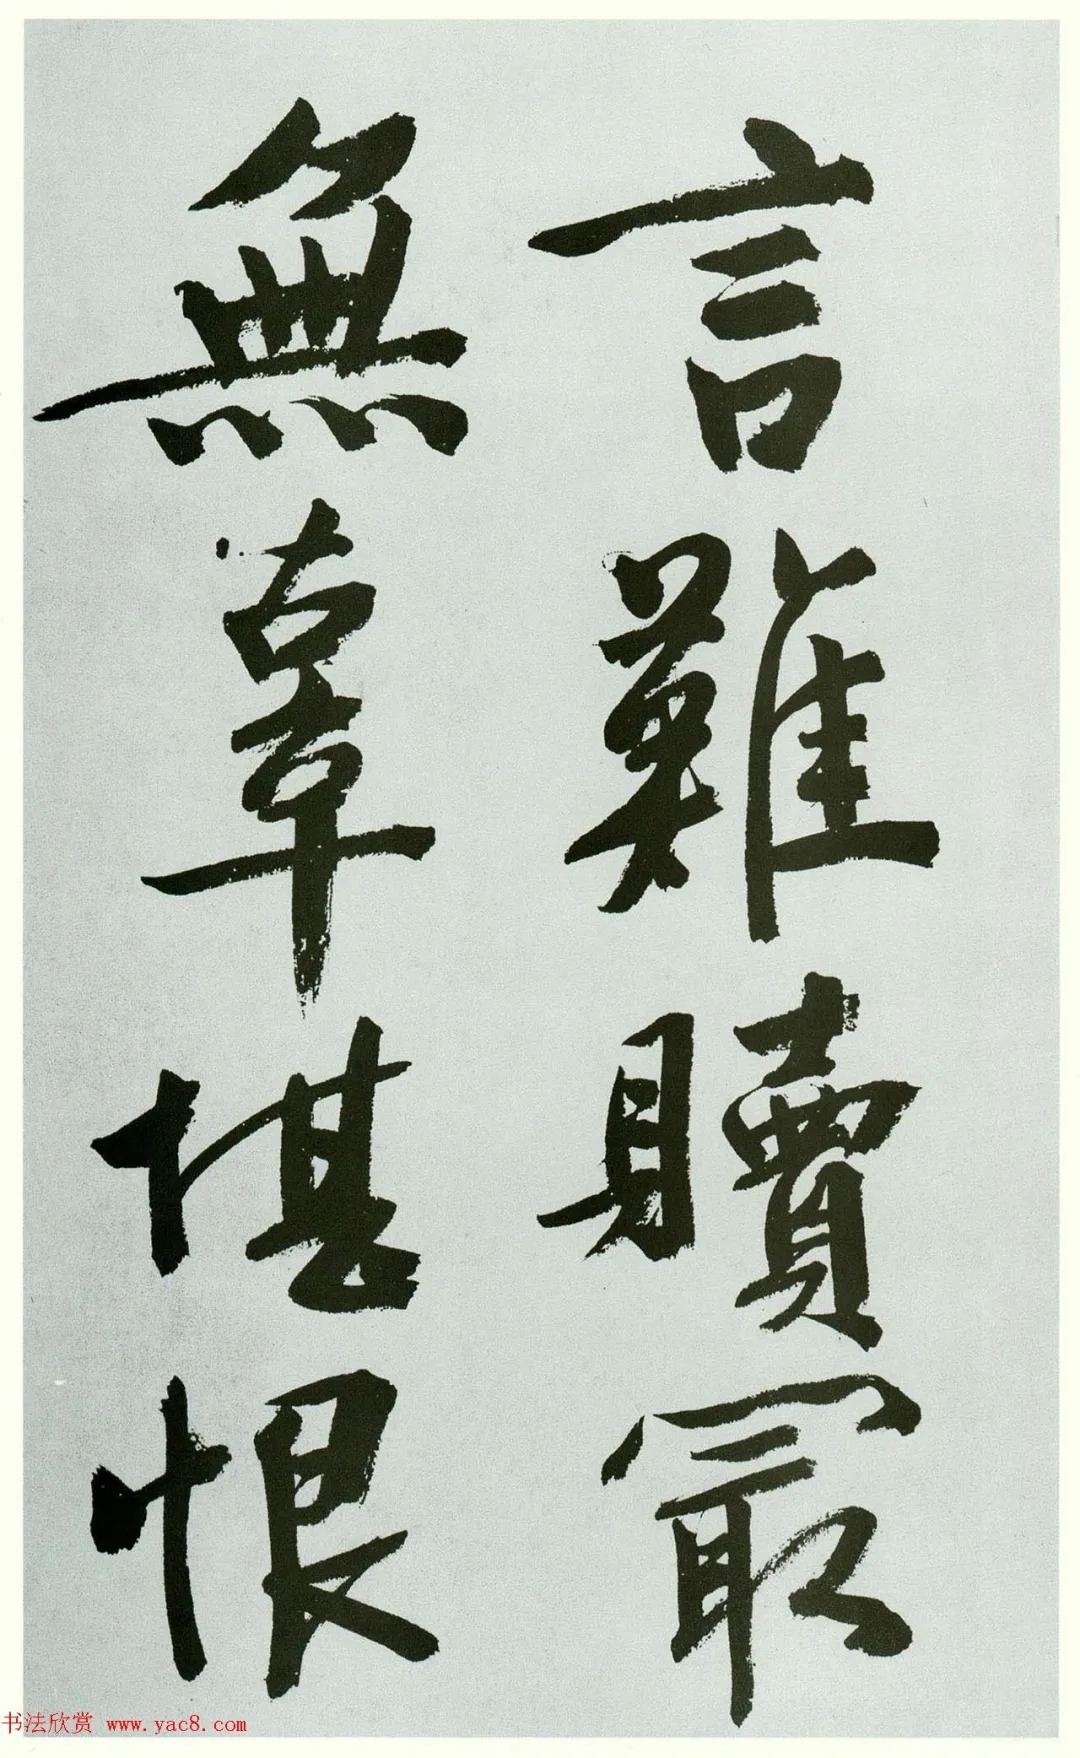 言難贖最
無辜堪恨
书法欣赏 www.yac8.com